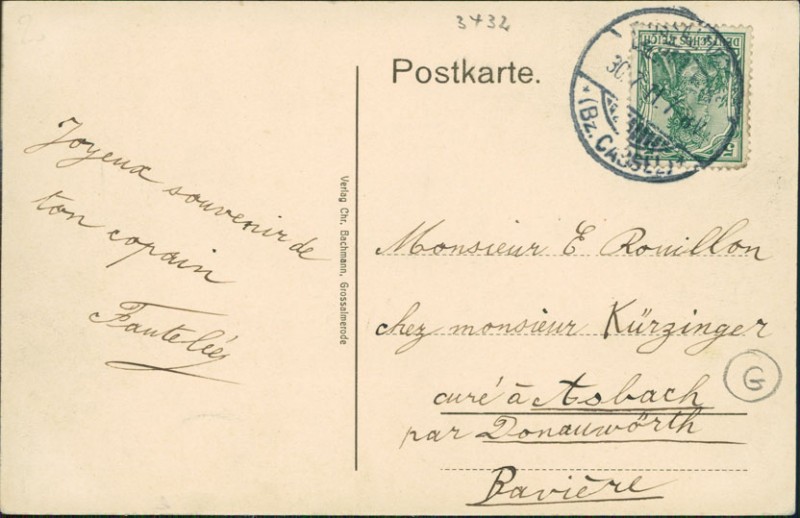 3432
Postkarte.
DEUTSCHES REICH
5
(Bz. CASSEL)
Joyeux souvenir de
ton copain
Verlag Chr. Bachmann, Grossalmerode
Monsieur E Rouillon
chez monsieur Kürzinger
curé à Asbach
par Donauwörth
Bavière